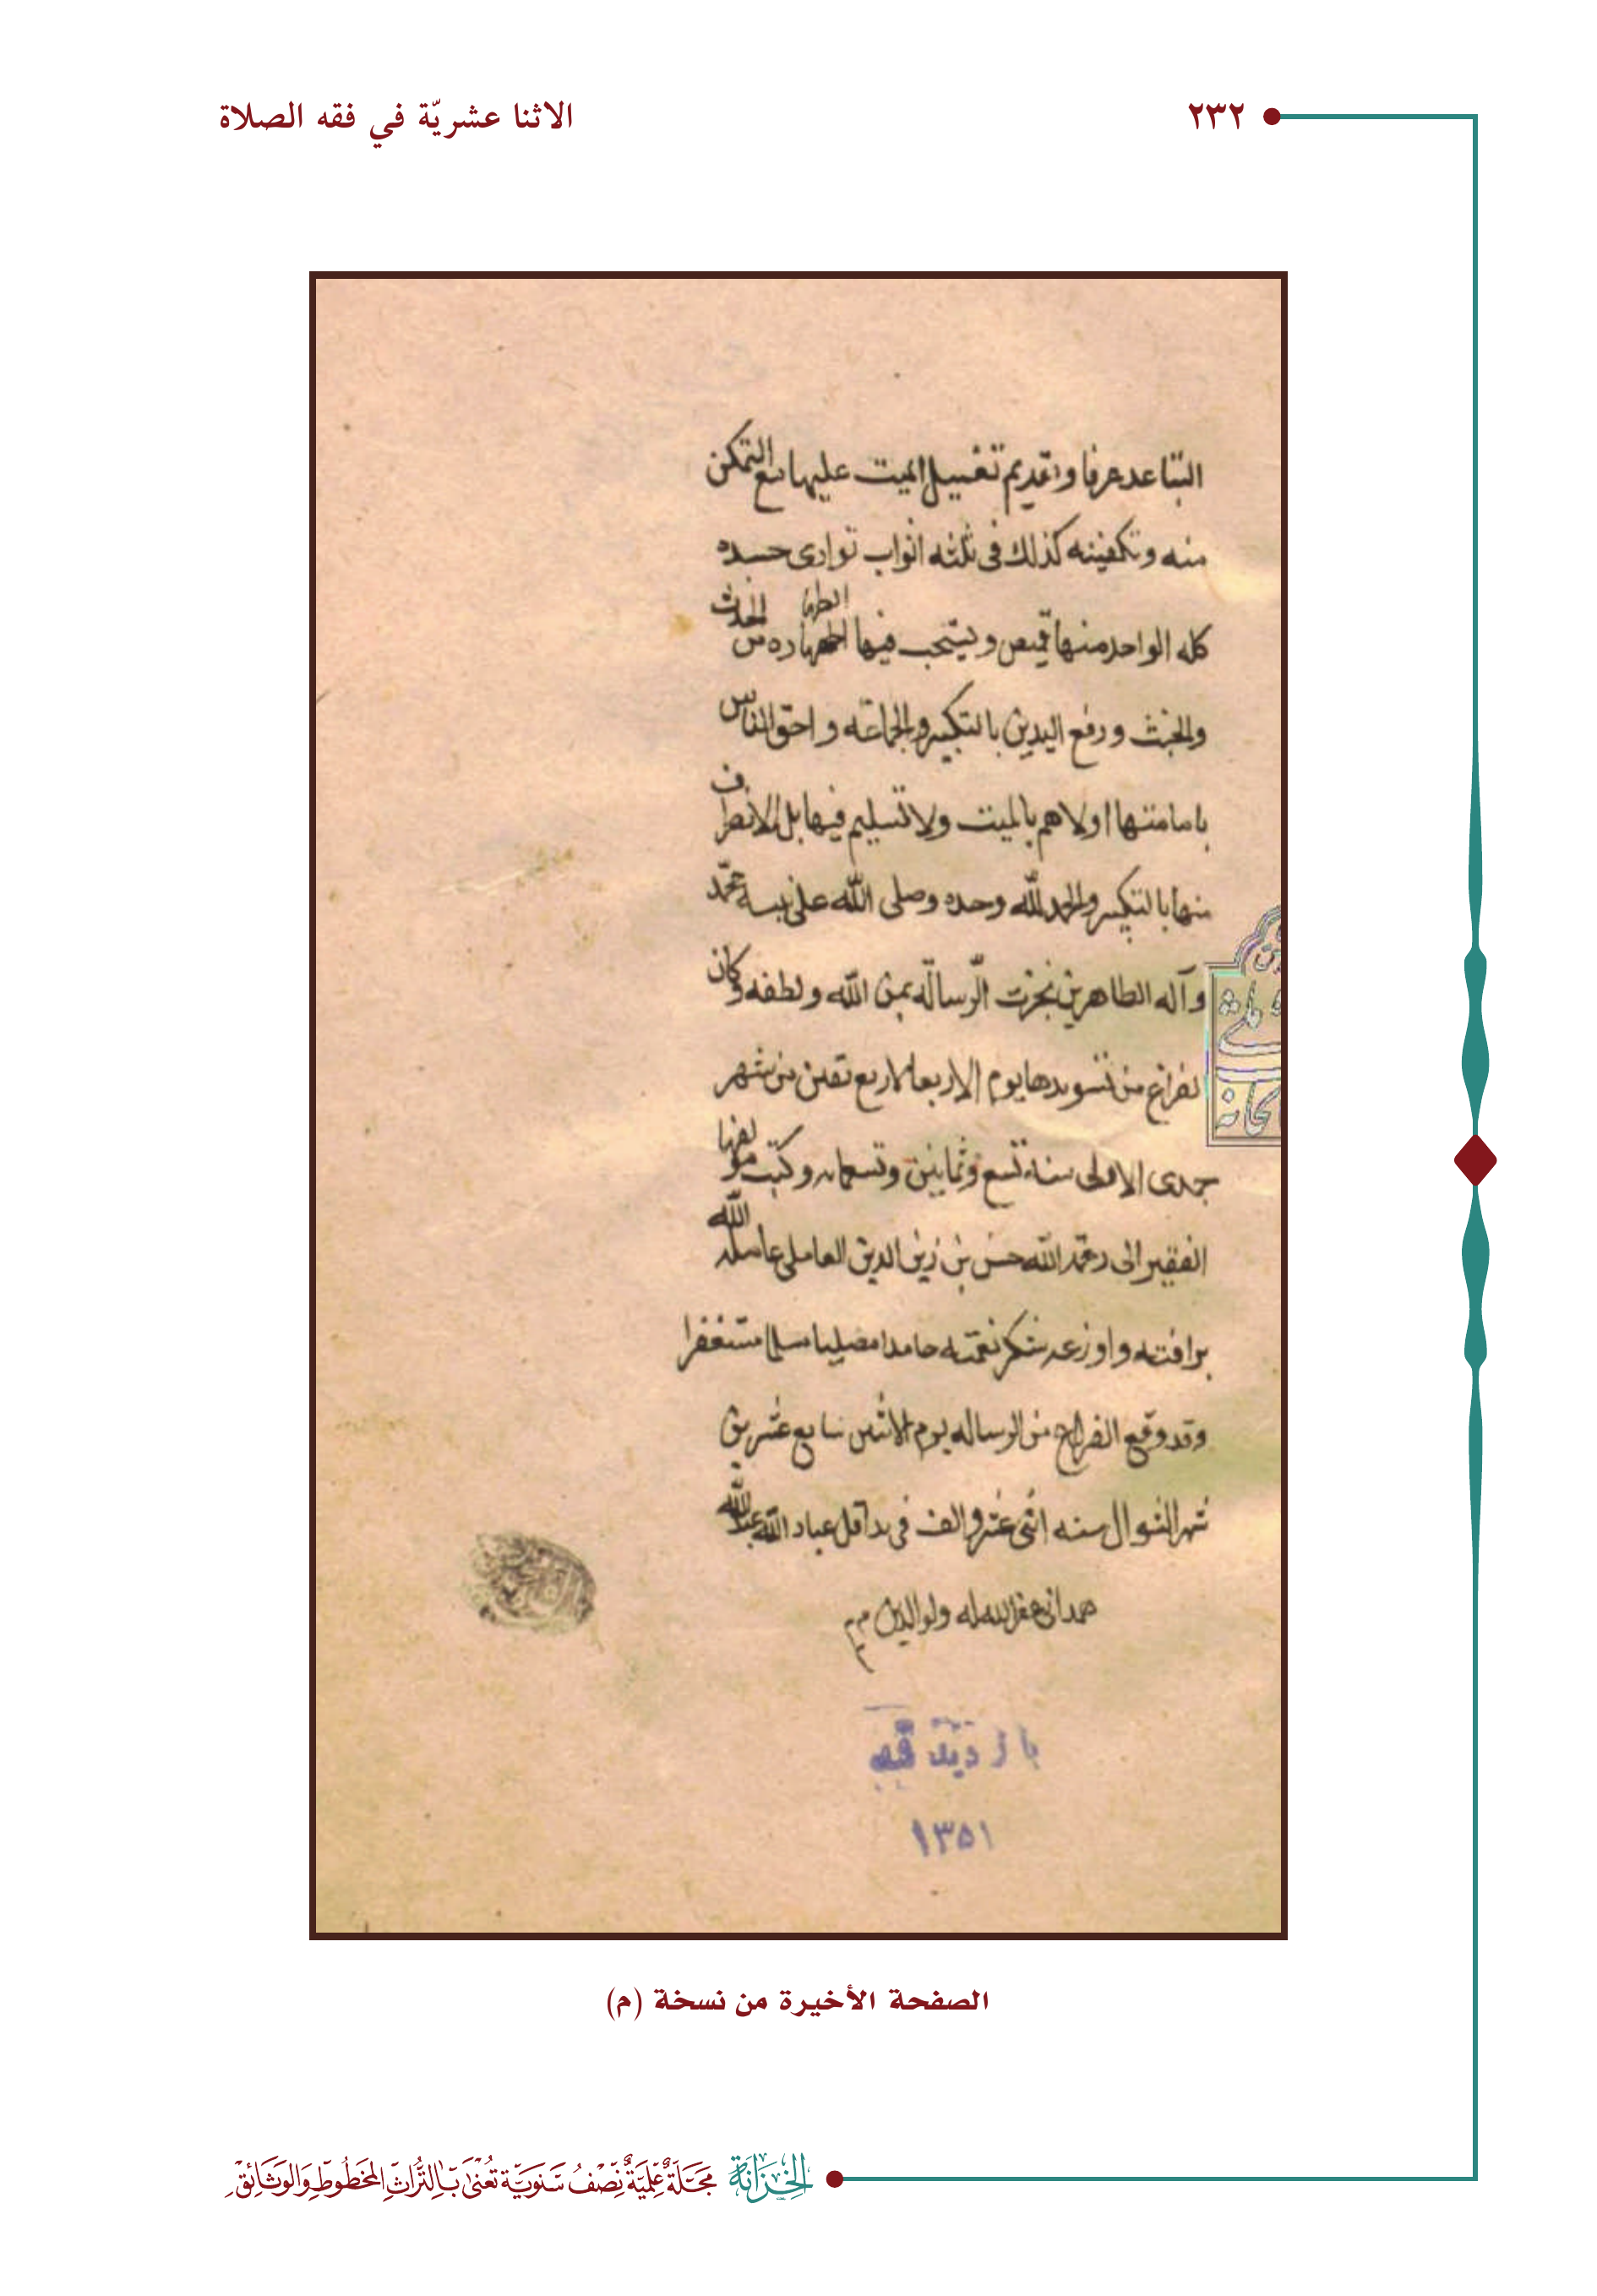 ٢٣٢
الاثنا عشريّة في فقه الصلاة
التباعد عرفا وتقديم تغسيل الميت عليها مع التمكن
منه وتكفينه كذلك فى ثلثه اثواب توارى جسده
كله الواحد منها قميص ويستحب فيها الطهاره من الحدث
والخبث ورفع اليدين بالتكبير والجماعه واحق الناس
بامامتها اولاهم بالميت ولا تسليم فيها بل الانصراف
منها بالتكبير والحمد لله وحده وصلى الله على نبيه محمد
وآله الطاهرين نجزت الرسالة بمن الله ولطفه وكان
الفراغ من تسويدها يوم الاربعا لاربع بقين من شهر
جمدى الاولى سنه تسع وثمانين وتسعمايه وكتب مؤلفها
الفقير الى رحمة الله حسن بن زين الدين العاملى عامله الله
برافته واوزعه شكر نعمته حامدا مصليا مسلما مستغفرا
وقد وقع الفراغ من الرساله يوم الاثنين سابع عشرين
شهر الشوال سنه اثنى عشر والف فى يد اقل عباد الله عبد الله
همدانى غفر الله له ولوالديه م م
بازدید
۱۳۵۱
الصفحة الأخيرة من نسخة (م)
الخِزَانَة مَجَلَّةٌ عِلْمِيَّةٌ نِصْفُ سَنَوِيَّة تُعْنَى بِالتُّرَاثِ المَخطُوطِ وَالوَثَائِقِ